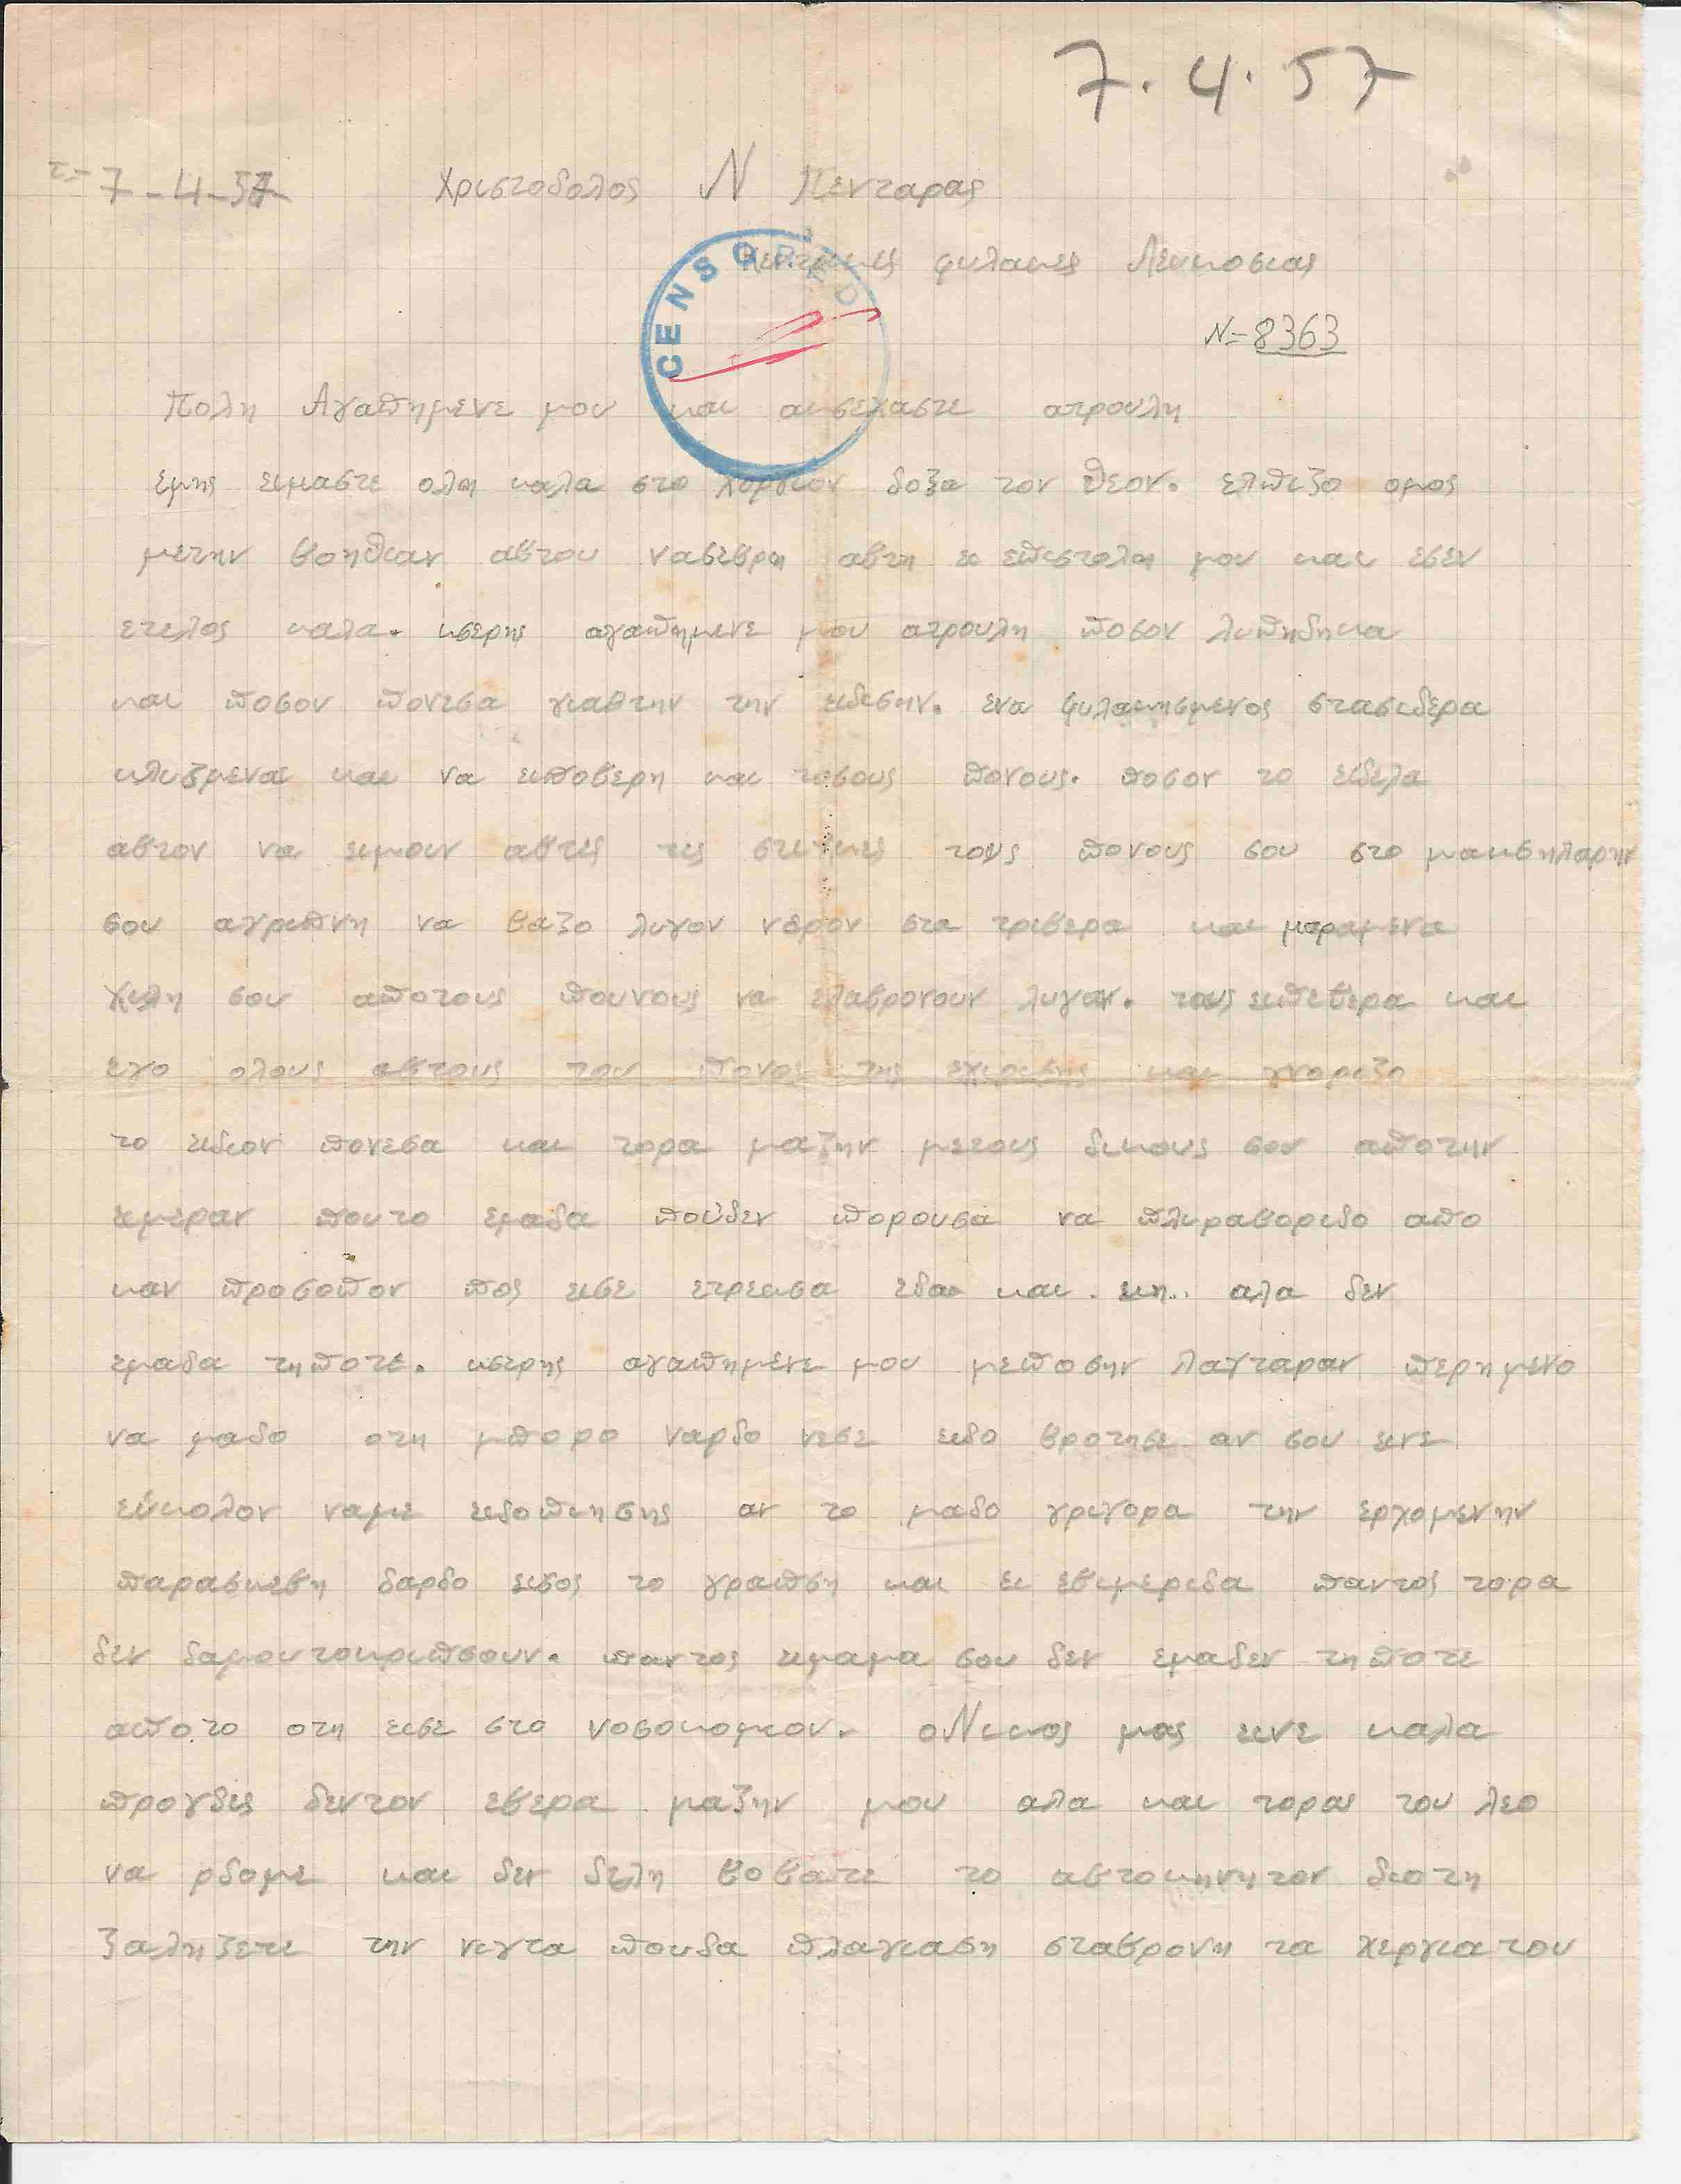 7.4.57
τ=7-4-57 Χριστοδολος Ν Πενταρας
CENSORED
Κεντρικες φυλακες Λευκοσιας
Ν=8363
Πολη Αγαπημενε μου και ακσεχαστε ατρουλη
εμης ειμαστε ολοι καλα στο χοργιον δοξα τον θεον. ελπιζο ομος
μετην βοηθιαν αβτου νασεβρη αβτη ει επιστολη μου και εσεν
ετελος καλα. κσερης αγαπημενε μου ατρουλη ποσον λυπηδηκα
και ποσον πονεσα γιαβτην την ειδισην. ενα φυλακησμενος στασιδερα
κλιζμενος και να ειποβερη και τοσους πονους. ποσον το ειδελα
αβτον να ειμουν αβτες τις στιγμες τους πονους σου στο μακσηλαρην
σου αγριπνη να βαζο λιγον νερον στα τριβερα και μαραμενα
χιλη σου αποτους πουνους να ελαβρονουν λιγον. τους ειπεβερα και
εγο ολους αβτους του πονος της εγχιρισης και γνοριζο
το ειδιον πονεσα και τορα μαζην μετους δικους σου αποτην
ειμεραν που το εμαδα πούδεν πορουσα να πλιραβοριδο απο
καν προσοπον πος εισε ετρεκσα εδο και εκη.. αλα δεν
εμαδα τηποτε. κσερης αγαπημενε μου μεποσην λαγταραν περημενο
να μαδο οτη μπορο ναρδο νεσε ειδο βροτησε αν σου εινε
εύκολον ναμε ειδοπιησης αν το μαδο γριγορα την ερχομενην
παρασκεβη δαρδο εισος το γραπση και ει εβιμεριδα παντος τορα
δεν δαμουτοκριπσουν. παντος ειμαμα σου δεν εμαδεν τηποτε
απο το οτη εισε στο νοσοκομιον. ο Νικος μας εινε καλα
προγδες δεντον εβερα μαζην μου αλα και τορας του λεο
να ρδομε και δεν δελη βοβατε το αβτοκηνητον διοτη
ζαληζετε την νιγτα πουδα πλαγιαση σταβρονη τα χεργια του